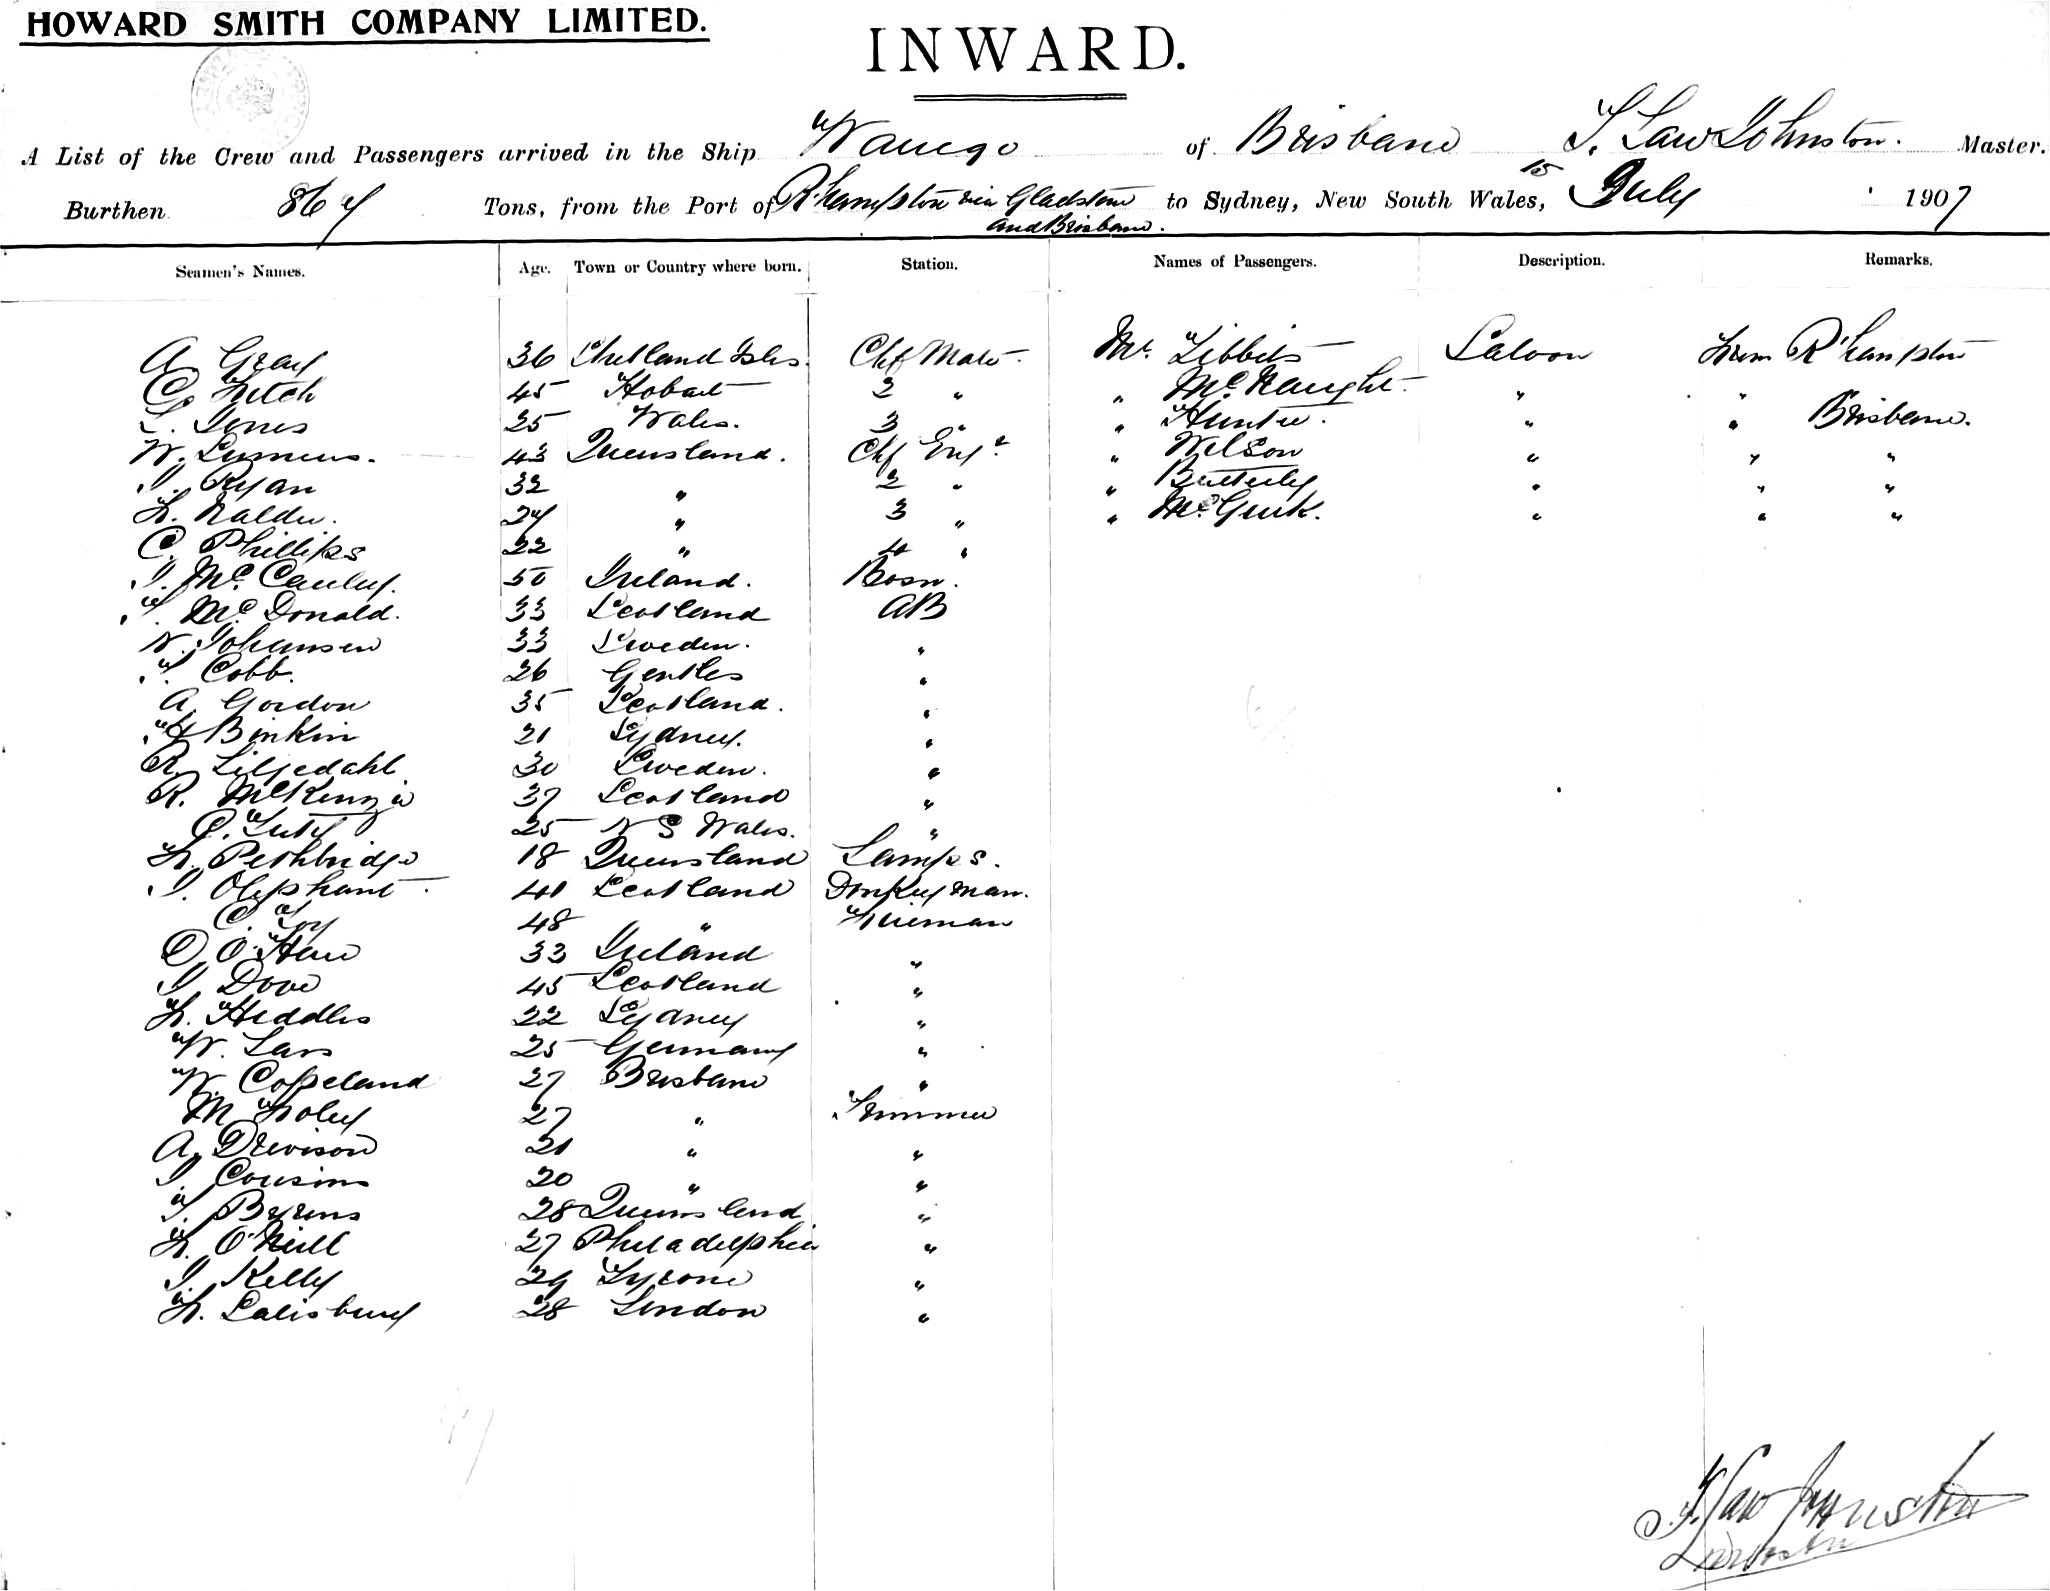 HOWARD SMITH COMPANY LIMITED.
INWARD.
A List of the Crew and Passengers arrived in the Ship Warrego of Brisbane T. Law Johnston. Master.
Burthen 864 Tons, from the Port of R'hampton via Gladstone and Brisbane. to Sydney, New South Wales, 15 July 1907
Seamen's Names. Age. Town or Country where born. Station. Names of Passengers. Description. Remarks.
A Gray 36 Shetland Isles. Chf Mate Mr. Tibbits Saloon From R'hampton
C. Fitch 45 Hobart 2 " " McNaught " " "
L. Jones 25 Wales. 3 " " Hunter. " " Brisbane.
W. 43 Queensland. Chf Engr " Wilson " " "
J. Ryan 32 " 2 " " Butterly " " "
F. Nalder. 24 " 3 " " McGurk. " " "
C. Phillips 22 " 4 "
J. McCauley. 50 Ireland. Bosn.
T. McDonald. 33 Scotland AB
N. Johansen 33 Sweden. "
T. Cobb. 26 "
A. Gordon 35 Scotland. "
H Binkin 21 Sydney. "
R. Liljedahl 30 Sweden. "
R. McKenzie 37 Scotland "
C. Tuty 25 N S Wales. "
F. Pethbridge 18 Queensland Lamps.
J. Oliphant 41 Scotland Donkeyman.
C. Foy 48 " Fireman
D. O'Hare 33 Ireland "
J. Dove 45 Scotland "
F. Heddles 22 Sydney "
W. Lars 25 Germany "
W. Copeland 27 Brisbane "
M Foley 27 " Trimmer
A. Drewison 21 " "
J. Cousins 20 " "
T. Byrens 28 Queensland "
F. O'Neill 27 Philadelphia "
J. Kelly 29 Tyrone "
F. Salisbury 28 London "
T. Law Johnston